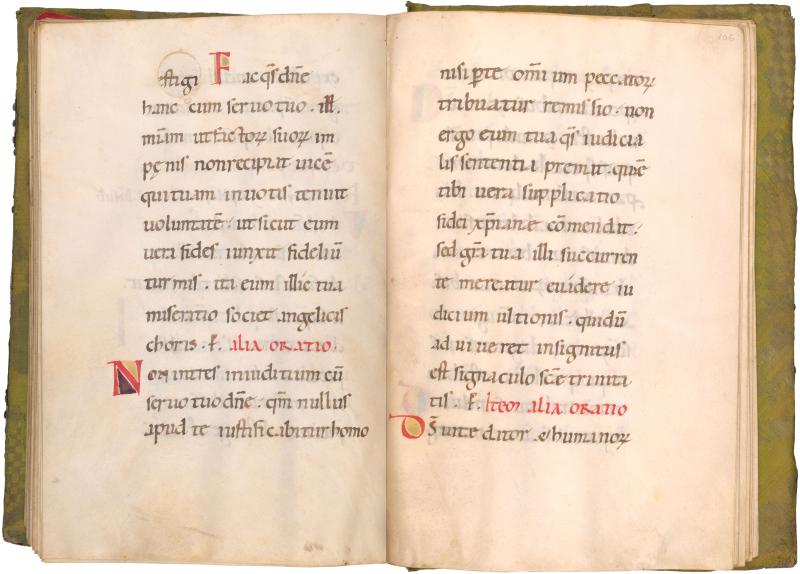 estigi Fac qs dñe
hanc cum seruo tuo · ill ·
m̃iam ut factorꝝ suorꝝ im
pęnis non recipiat uicē
qui tuam in uotis tenuit
uoluntatē · ut sicut eum
uera fides iunxit fideliū
turmis · ita eum illic tua
miseratio societ angelicis
choris · P̄ · alia oratio ·
Non intres in iuditium cū
seruo tuo dñe · qm̄ nullus
apud te iustificabitur homo
106
nisi ꝑ te omīum peccatoꝝ
tribuatur remissio · non
ergo eum tua qs iudicia
lis sententia premat · quē
tibi uera supplicatio
fidei xp̄ianę cōmendat ·
sed gr̄a tua illi succurren
te mereatur euadere iu
dicium ultionis · qui dū
ad uiueret insignitus
est signaculo scē trinita
tis · P̄ · Item alia oratio
Ds̄ uite dator & humanoꝝ